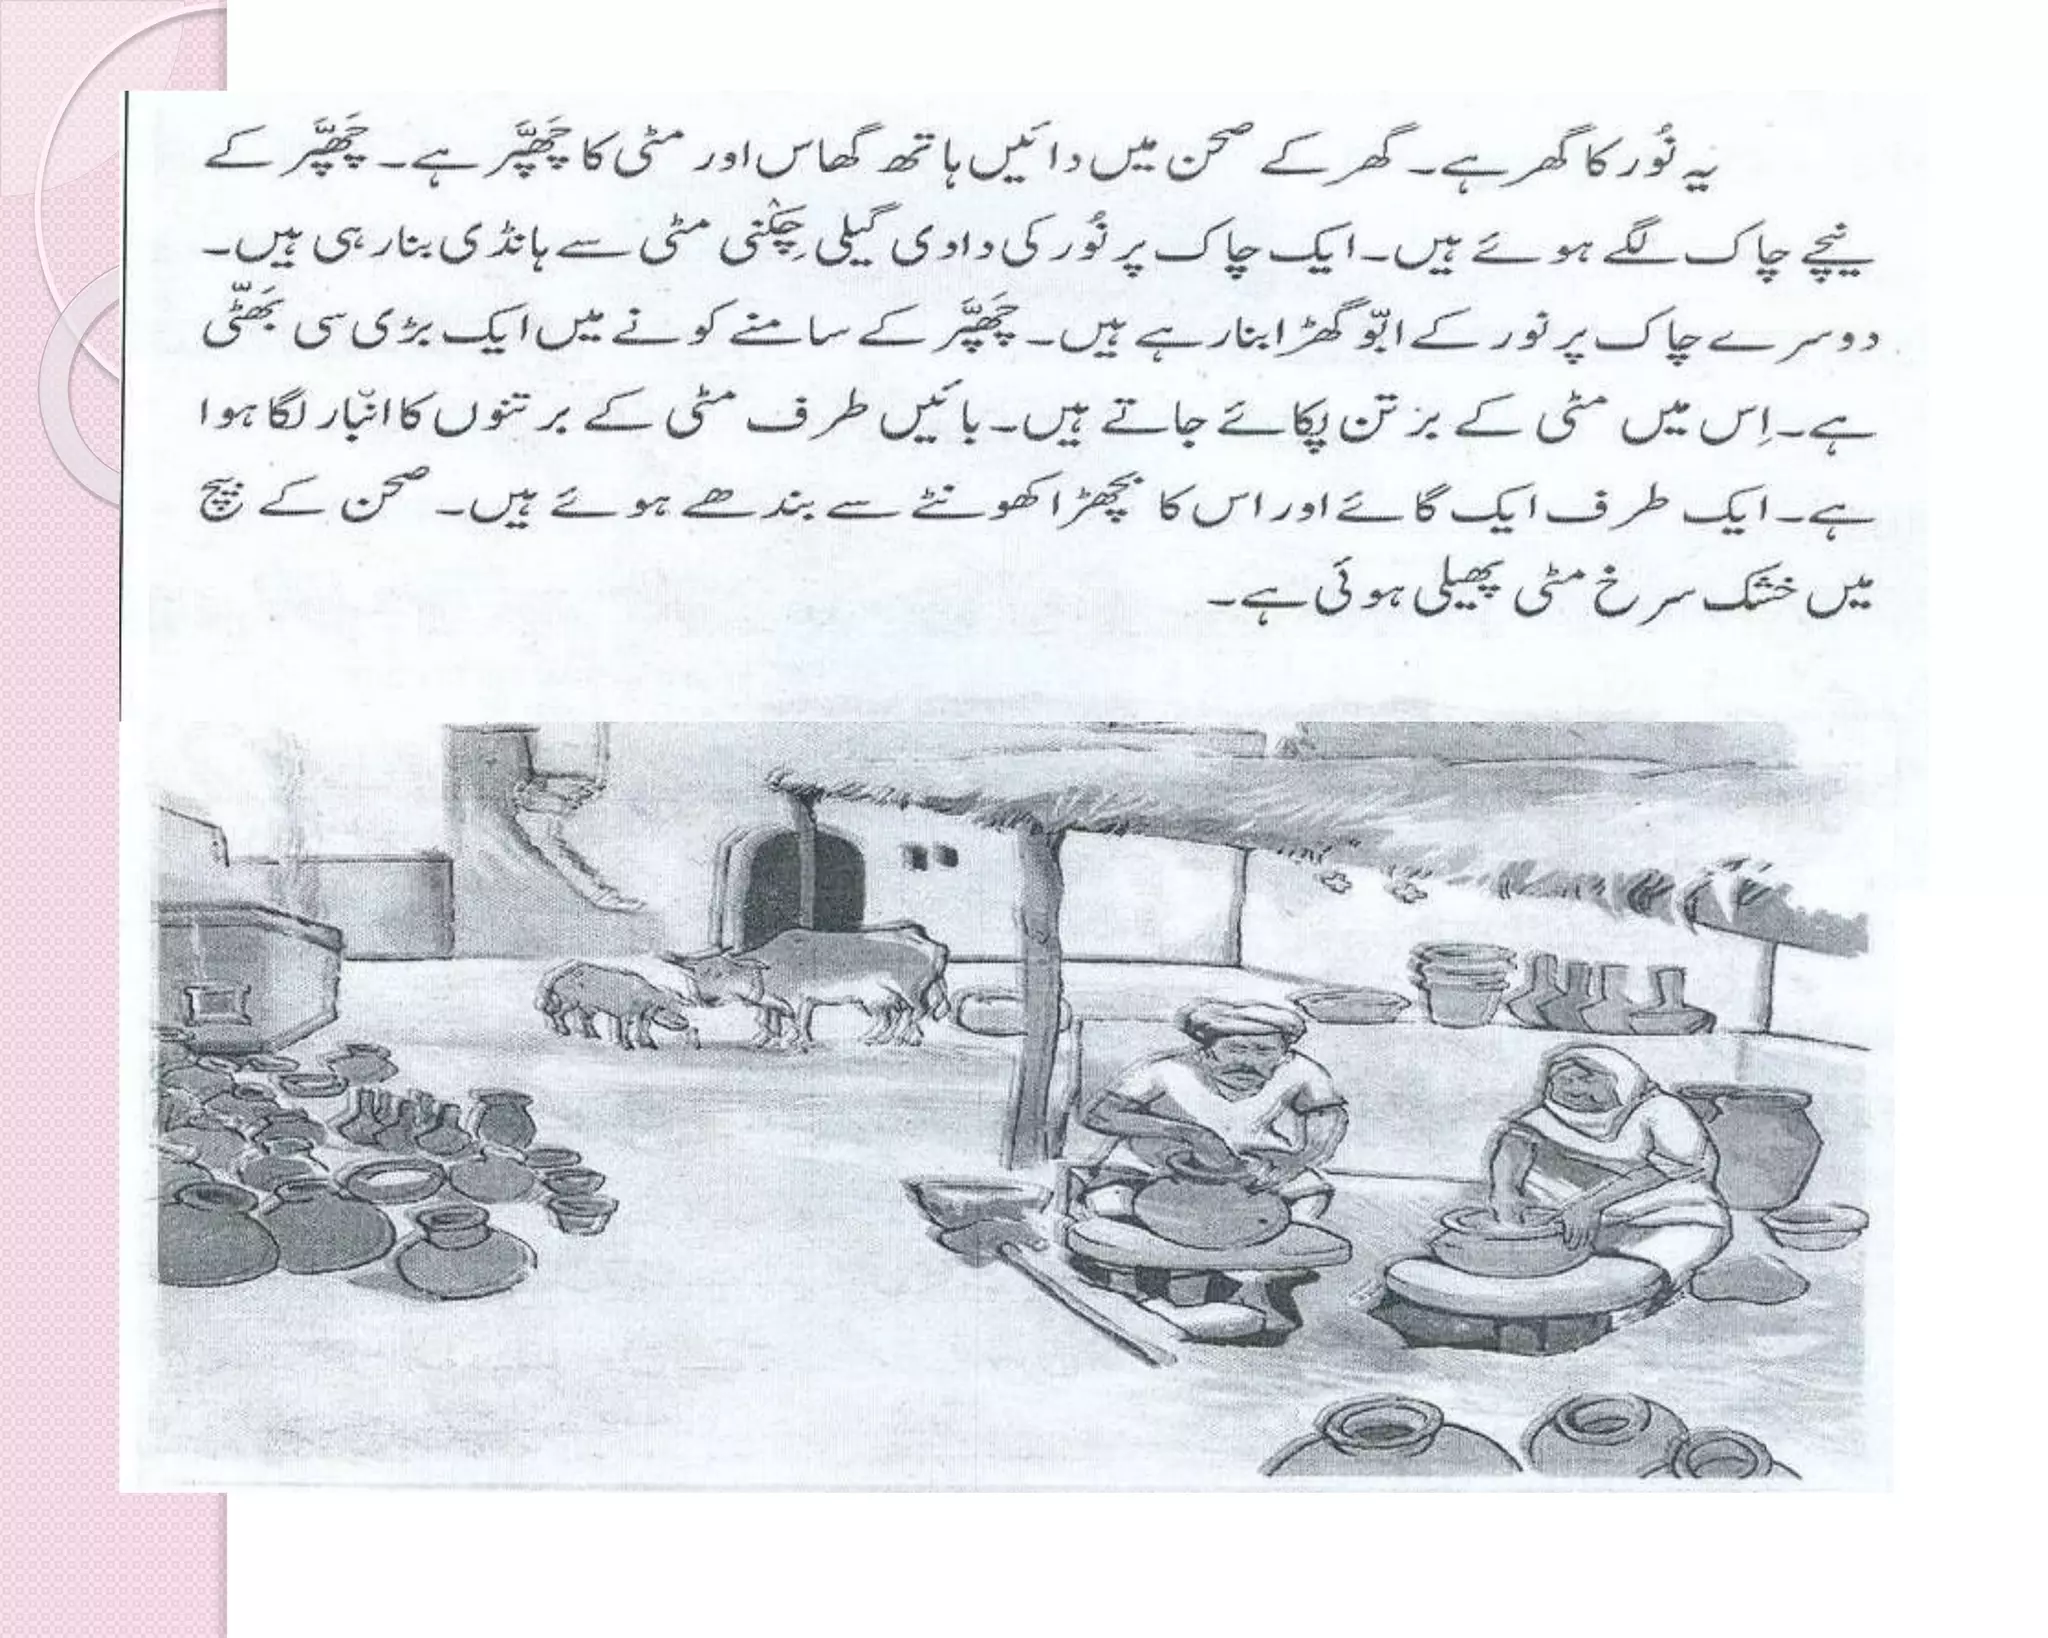 یہ نُور کا گھر ہے۔ گھر کے صحن میں دائیں ہاتھ گھاس اور مٹی کا چَھپَّر ہے۔ چَھپَّر کے
نیچے چاک لگے ہوئے ہیں۔ ایک چاک پر نُور کی دادی گیلی چِکنی مٹی سے ہانڈی بنا رہی ہیں۔
دوسرے چاک پر نور کے ابّو گھڑا بنا رہے ہیں۔ چَھپَّر کے سامنے کونے میں ایک بڑی سی بَھٹّی
ہے۔ اِس میں مٹی کے برتن پکائے جاتے ہیں۔ بائیں طرف مٹی کے برتنوں کا انبار لگا ہوا
ہے۔ ایک طرف ایک گائے اور اس کا بچھڑا کھونٹے سے بندھے ہوئے ہیں۔ صحن کے بیچ
میں خشک سرخ مٹی پھیلی ہوئی ہے۔